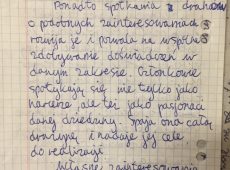 Ponadto spotkania z druhami
o podobnych zainteresowaniach
rozwija je i pozwala na wspólne
zdobywanie doświadczeń w
danym zakresie. Członkowie
spotykują się nie tylko jako
harcerze, ale też jako pasjonaci
danej dziedziny. Spaja ona całą
drużynę i nadaje jej cele
do realizacji.
Własne zainteresowania